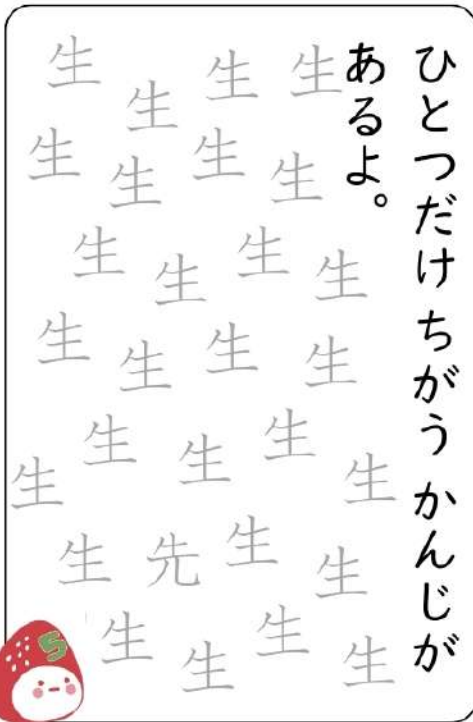 ひとつだけ ちがう かんじが
あるよ。
生 生 生 生
生 生 生 生
生 生 生 生
生 生 生 生
生 生 生 生 生
生 先 生 生
生 生 生 生